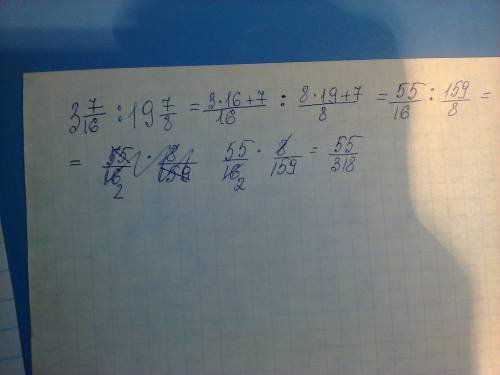 3 7/16 : 19 7/8 = (3·16+7)/16 : (8·19+7)/8 = 55/16 : 159/8 =
= 55/16 · 8/159 = 55/318